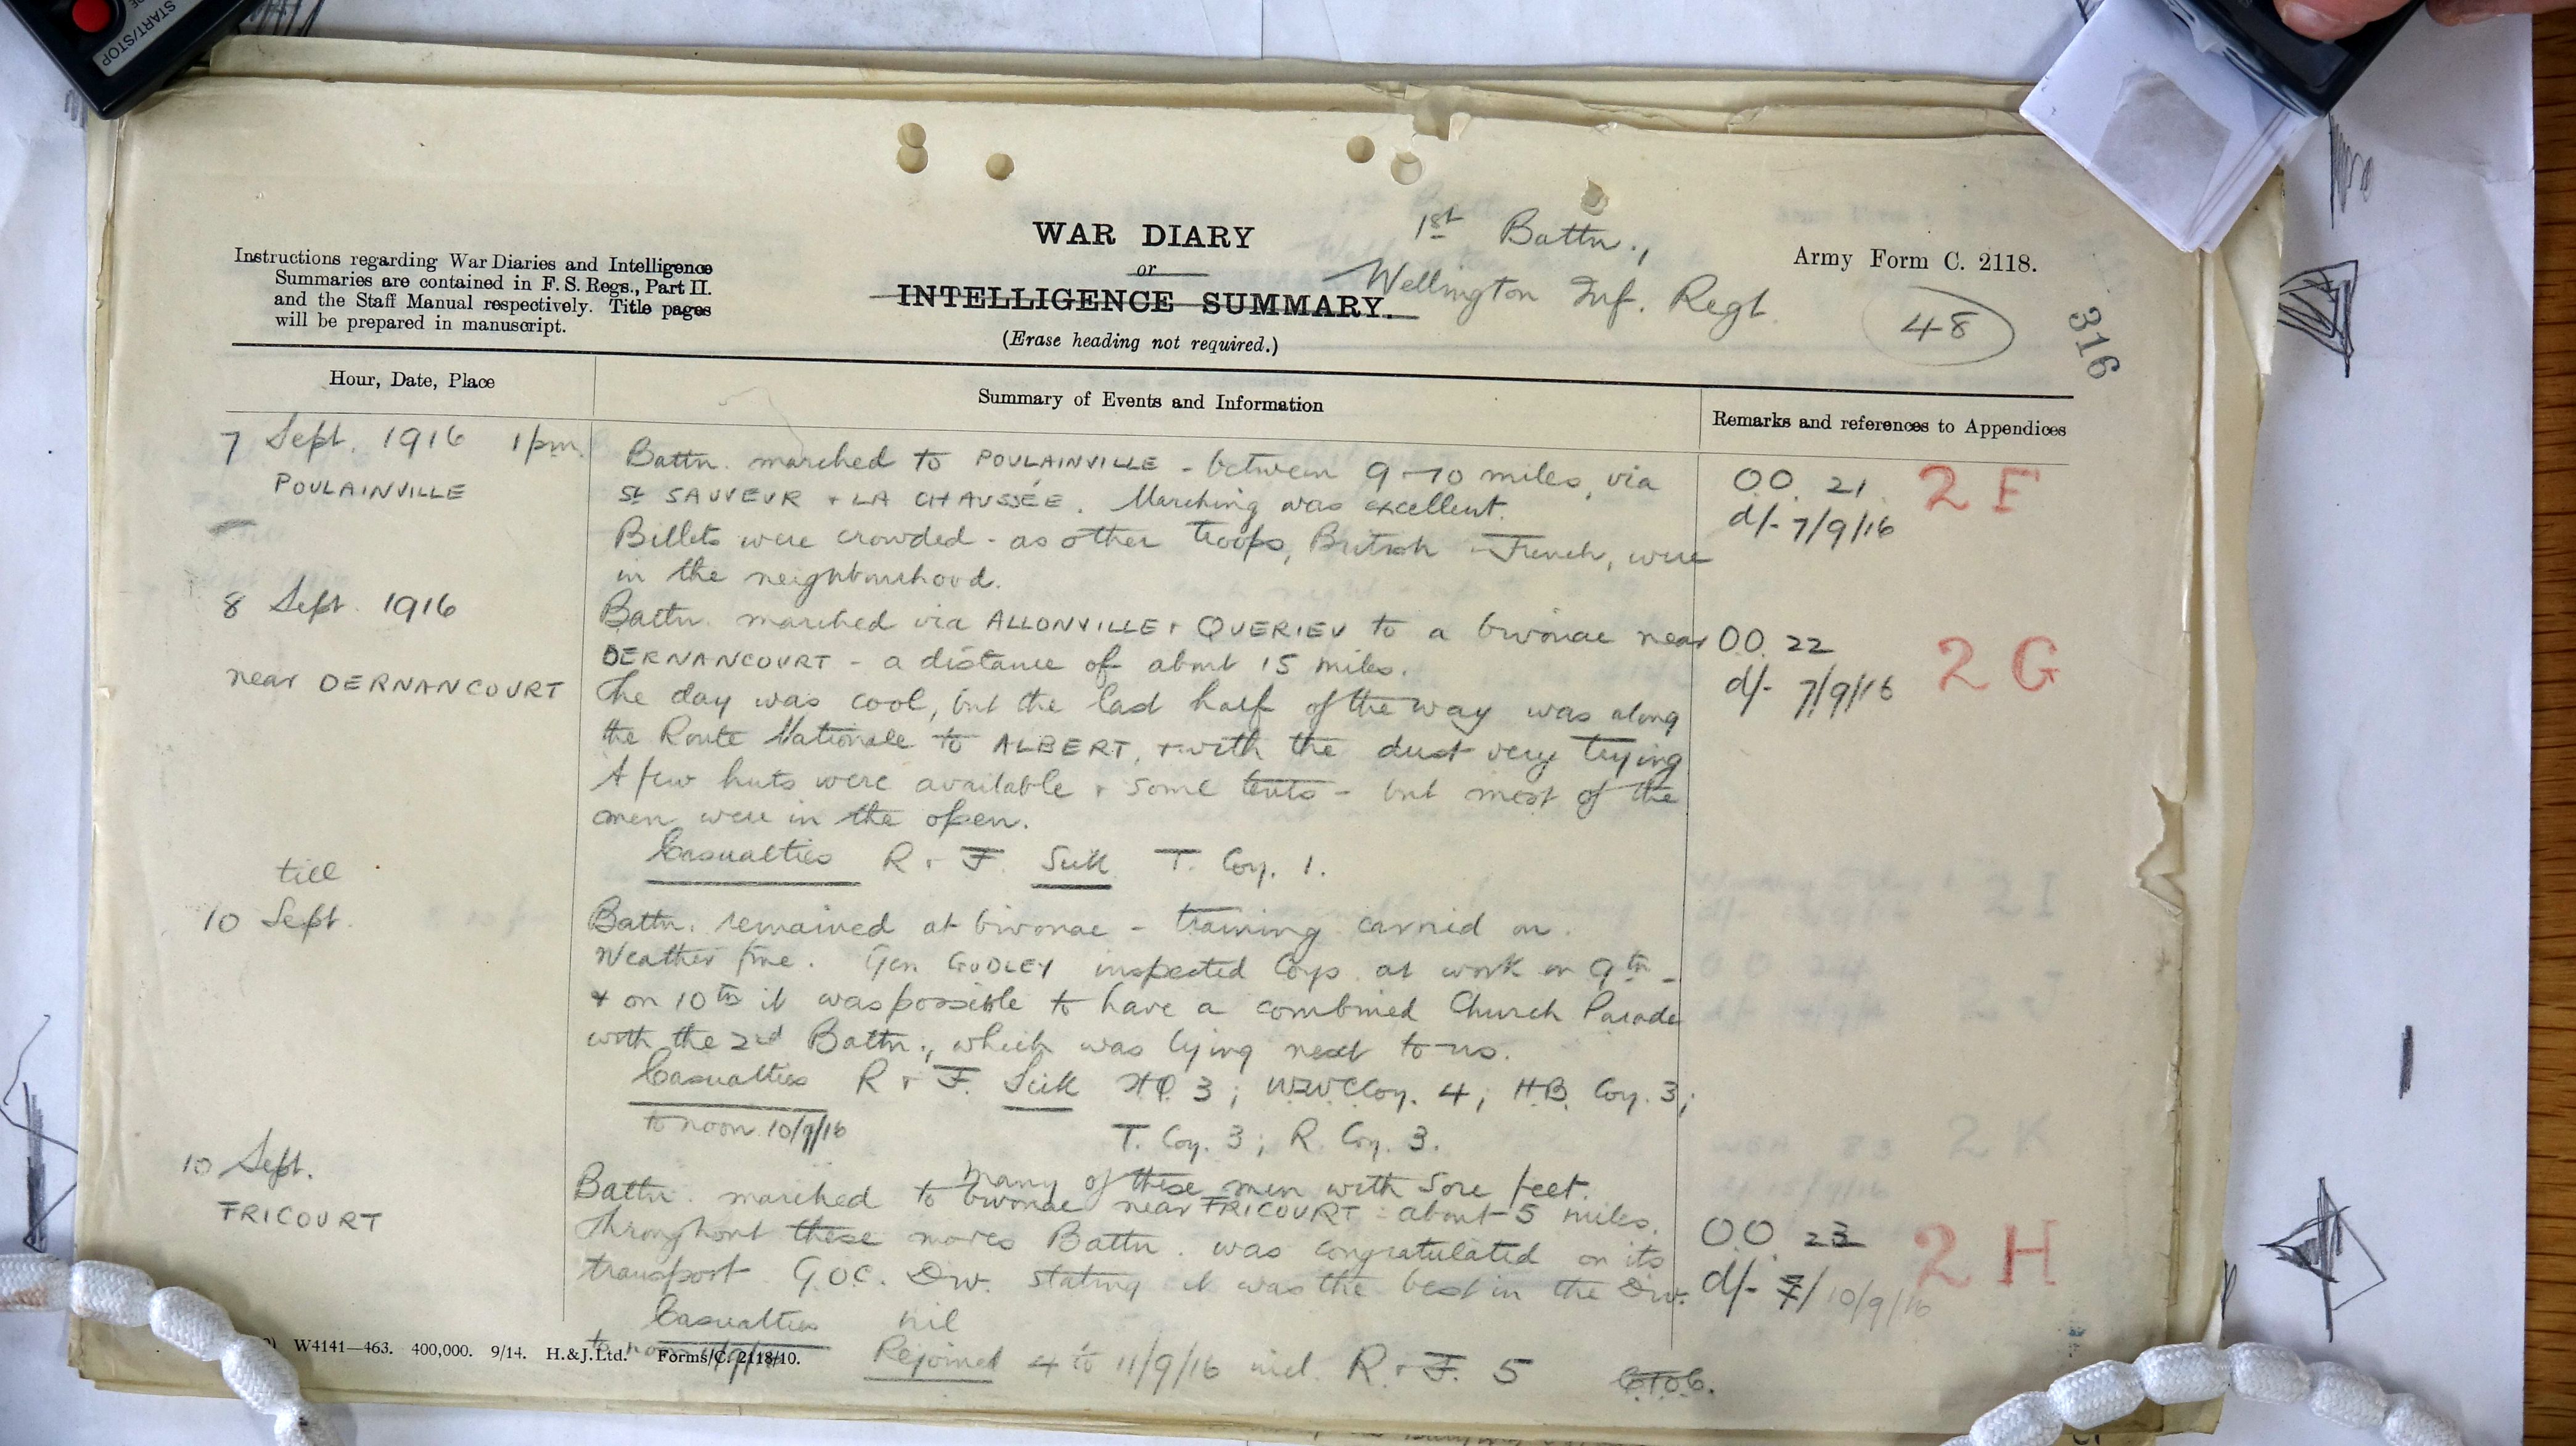 START/STOP
WAR DIARY
or
INTELLIGENCE SUMMARY.
(Erase heading not required.)
Instructions regarding War Diaries and Intelligence
Summaries are contained in F. S. Regs., Part II.
and the Staff Manual respectively. Title pages
will be prepared in manuscript.
1st Battn.,
Wellington Inf. Regt.
Army Form C. 2118.
48
316
Hour, Date, Place
Summary of Events and Information
Remarks and references to Appendices
7 Sept. 1916 1 pm.
POULAINVILLE
Battn. marched to POULAINVILLE - between 9-10 miles, via
St SAUVEUR + LA CHAUSSÉE. Marching was excellent.
Billets were crowded - as other troops, British + French, were
in the neighbourhood.
O.O. 21.
d/- 7/9/16
2 F
8 Sept. 1916
near DERNANCOURT
Battn. marched via ALLONVILLE + QUERIEU to a bivouac near
DERNANCOURT - a distance of about 15 miles.
The day was cool, but the last half of the way was along
the Route Nationale to ALBERT, + with the dust very trying
A few huts were available + some tents - but most of the
men were in the open.
Casualties R + F. Sick T. Coy. 1.
O.O. 22
d/- 7/9/16
2 G
till
10 Sept.
Battn. remained at bivouac - training carried on.
Weather fine. Gen GODLEY inspected Coys. at work on 9th -
+ on 10th it was possible to have a combined Church Parade
with the 2nd Battn., which was lying next to us.
Casualties R + F. Sick HQ 3; W.W.C Coy. 4; H.B. Coy. 3;
to noon 10/9/16
T. Coy. 3; R. Coy. 3.
many of these men with sore feet.
10 Sept.
FRICOURT
Battn. marched to bivouac near FRICOURT - about 5 miles.
Throughout these moves Battn. was congratulated on its
transport G.O.C. Div. stating it was the best in the Div.
Casualties nil
to noon
Rejoined 4 to 11/9/16 incl. R. + F. 5
O.O. 23
d/- 7/ 10/9/16
2 H
W4141—463. 400,000. 9/14. H.&J.Ltd. Forms/C. 2118/10.